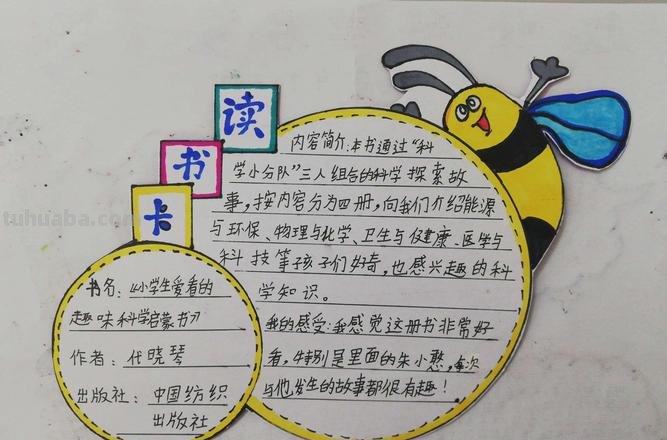 读
书
卡
内容简介:本书通过“科
学小分队”三人组合的科学探索故
事,按内容分为四册,向我们介绍能源
与环保、物理与化学、卫生与健康、医学与
科技等孩子们好奇,也感兴趣的科
学知识。
我的感受:我感觉这册书非常好
看,特别是里面的朱小憨,每次
与他发生的故事都很有趣!
书名:《小学生爱看的
趣味科学启蒙书》
作者:代晓琴
出版社:中国纺织
出版社
tuhuaba.com